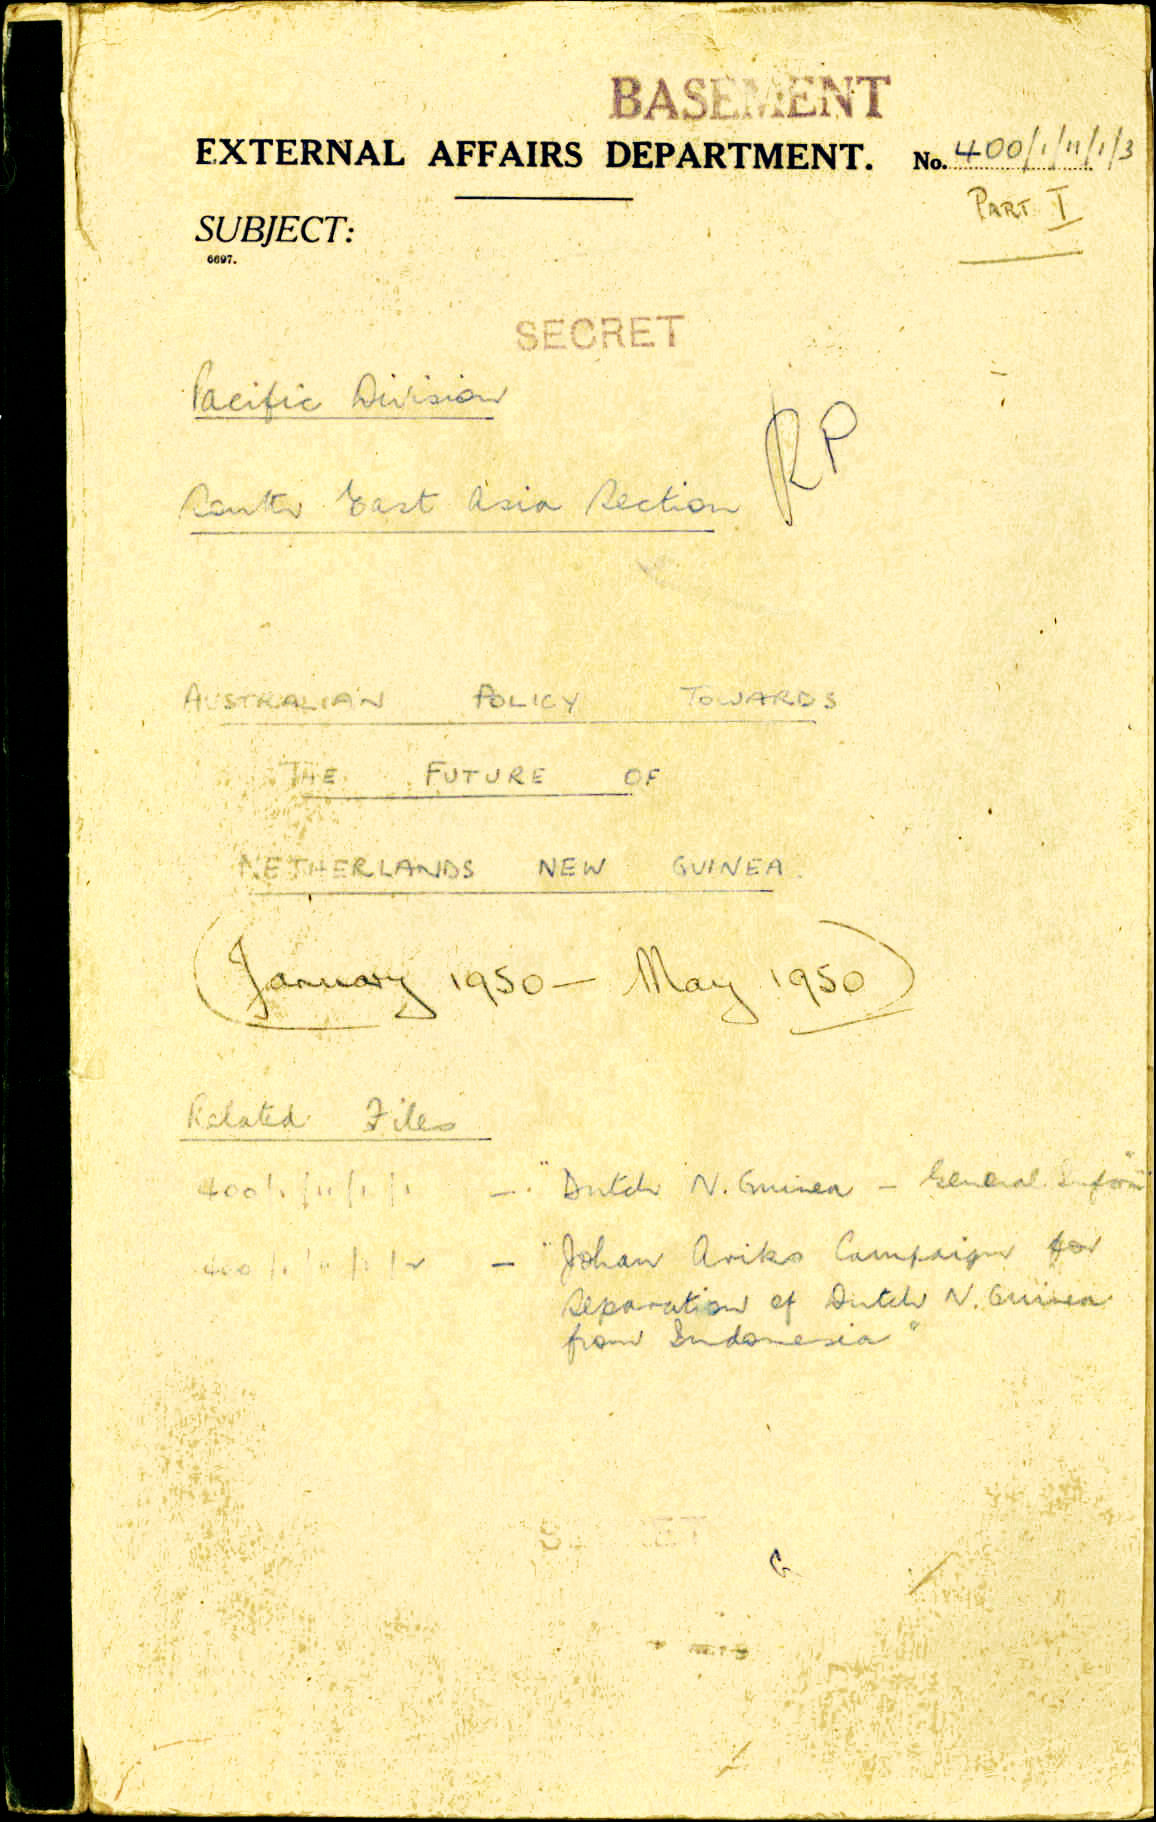 BASEMENT
EXTERNAL AFFAIRS DEPARTMENT. No. 400/1/11/1/3
PART I
SUBJECT:
6697.
SECRET
Pacific Division
RP
South East Asia Section
AUSTRALIAN POLICY TOWARDS
THE FUTURE OF
NETHERLANDS NEW GUINEA.
(January 1950 – May 1950)
Related Files
400/1/11/1/1 – "Dutch N. Guinea – General Inform"
400/1/11/1/2 – "Johan Ariks Campaign for
Separation of Dutch N. Guinea
from Indonesia"